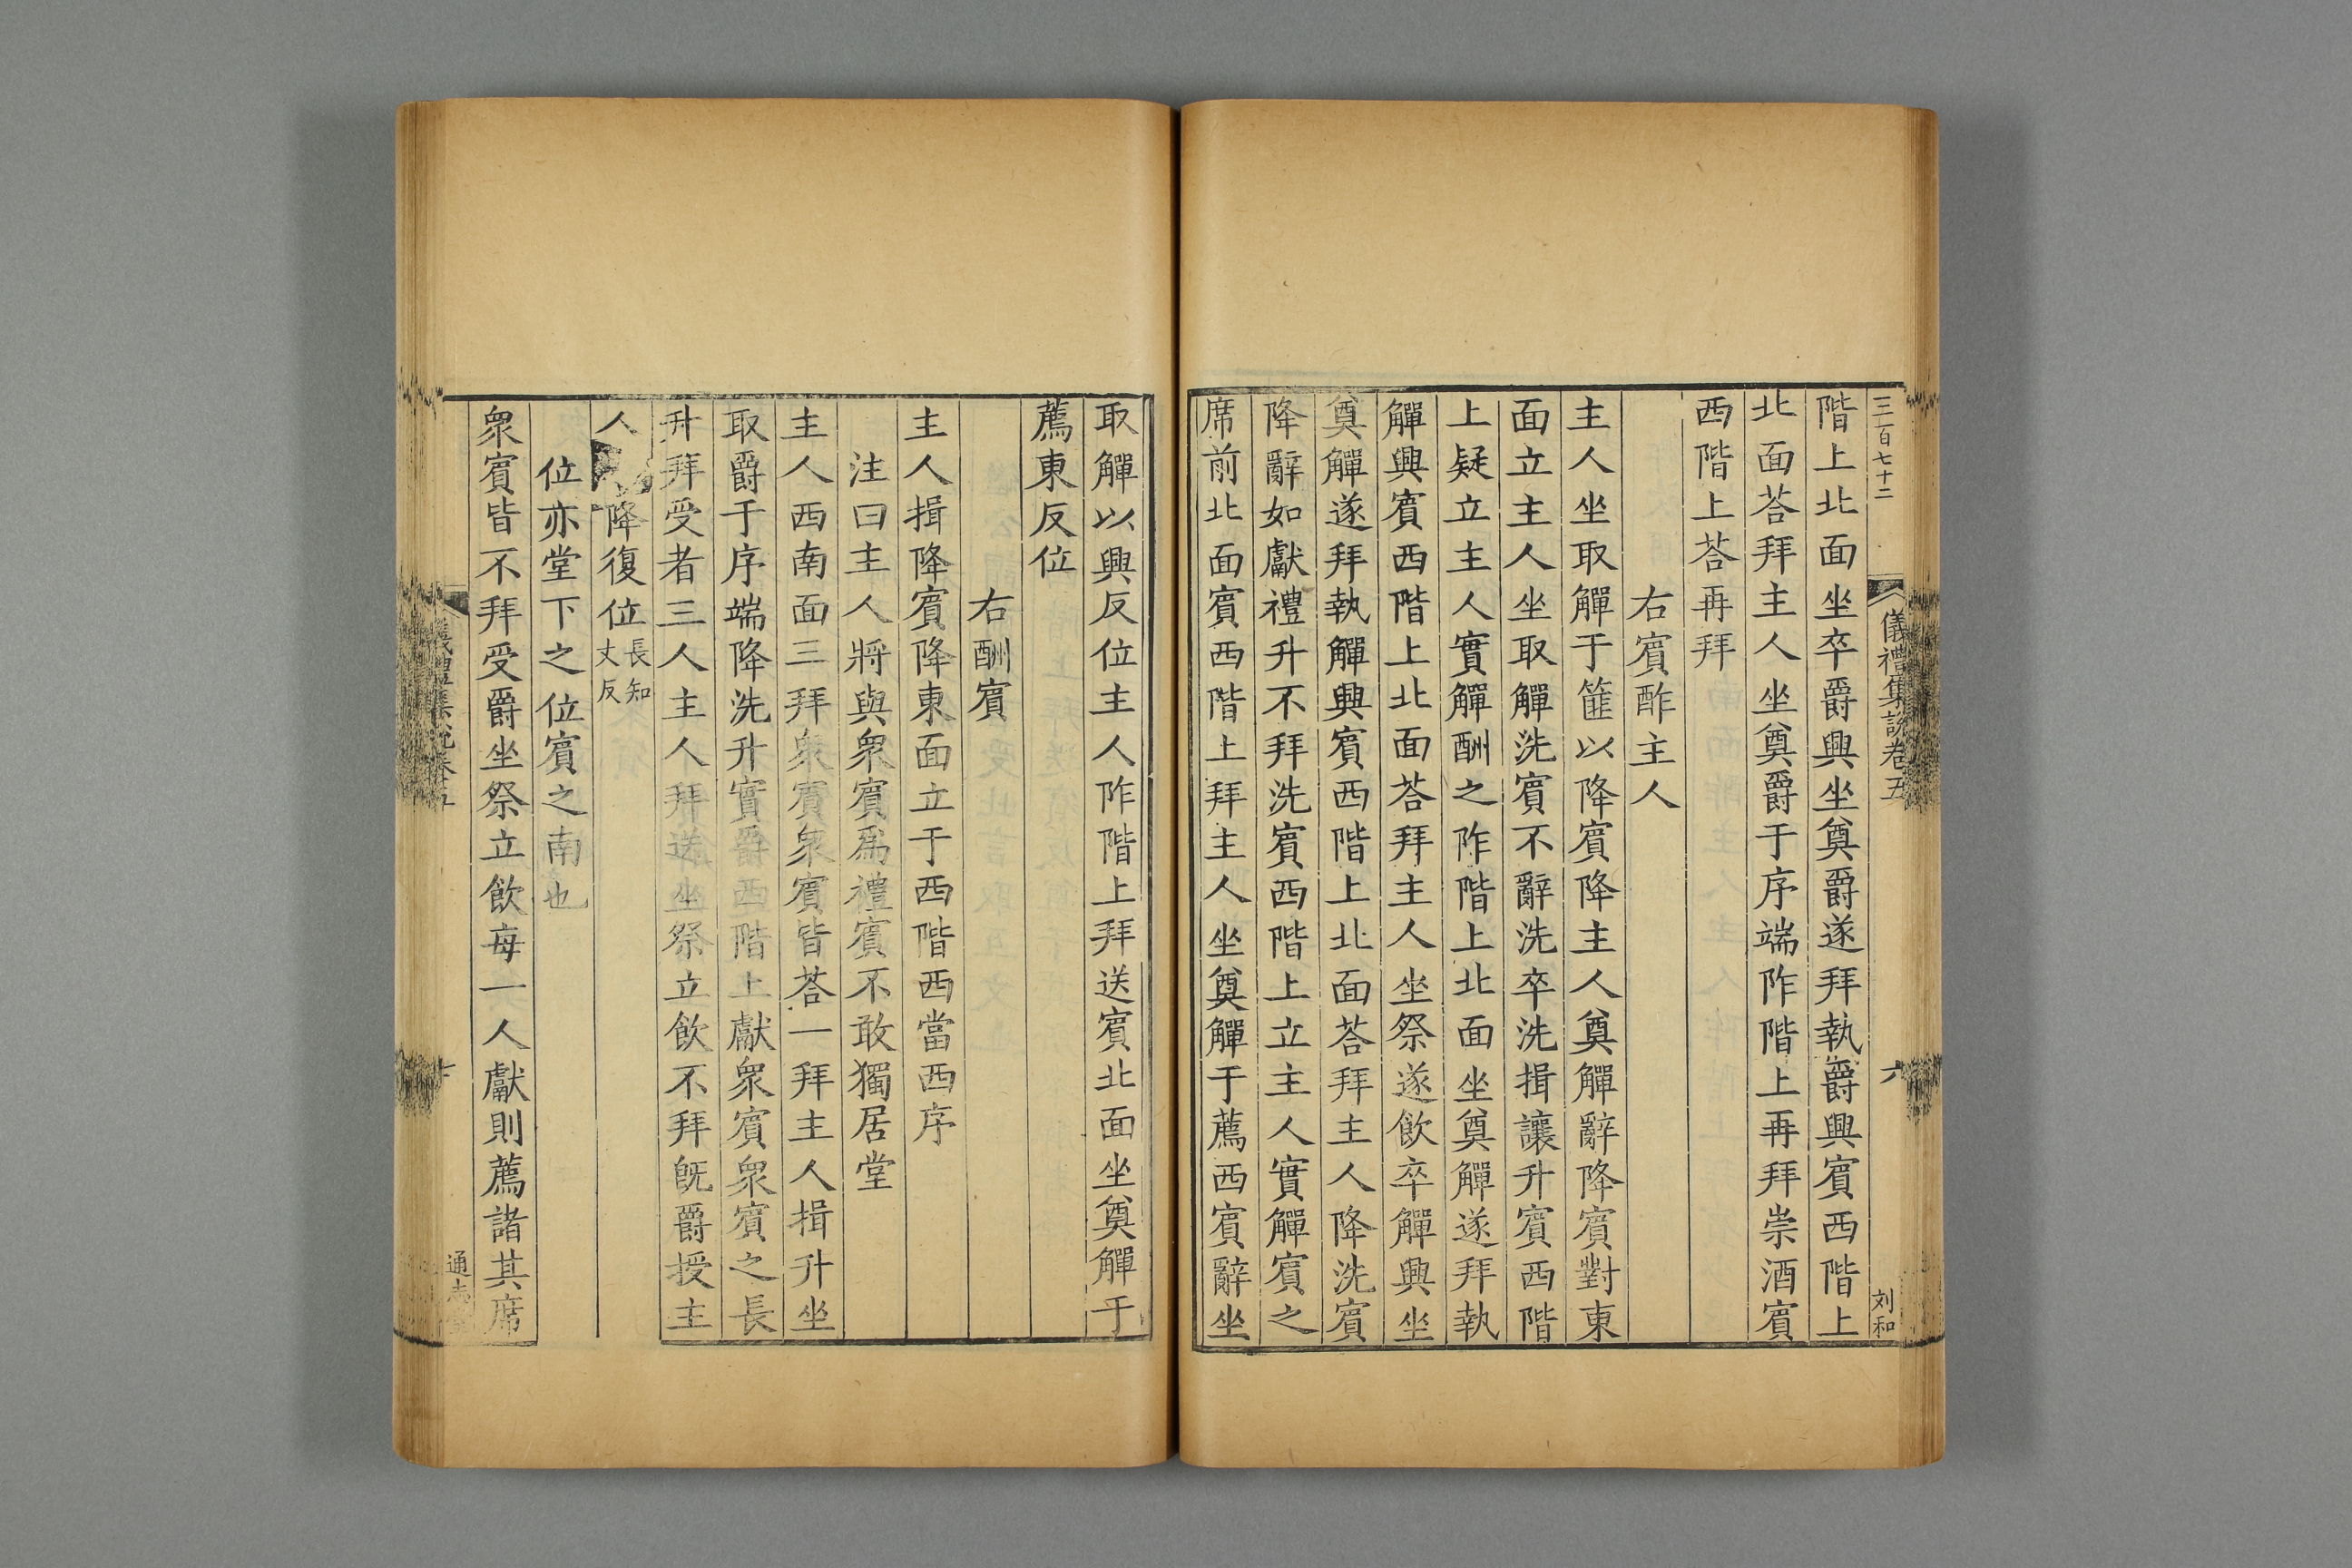 三百七十二
儀禮集說卷五
六
刘和
階上北面坐卒爵興坐奠爵遂拜執爵興賓西階上
北面荅拜主人坐奠爵于序端阼階上再拜崇酒賓
西階上荅再拜
右賓酢主人
主人坐取觶于篚以降賓降主人奠觶辭降賓對東
面立主人坐取觶洗賓不辭洗卒洗揖讓升賓西階
上疑立主人實觶酬之阼階上北面坐奠觶遂拜執
觶興賓西階上北面荅拜主人坐祭遂飲卒觶興坐
奠觶遂拜執觶興賓西階上北面荅拜主人降洗賓
降辭如獻禮升不拜洗賓西階上立主人實觶賓之
席前北面賓西階上拜主人坐奠觶于薦西賓辭坐
取觶以興反位主人阼階上拜送賓北面坐奠觶于
薦東反位
右酬賓
主人揖降賓降東面立于西階西當西序
注曰主人將與衆賓爲禮賓不敢獨居堂
主人西南面三拜衆賓衆賓皆荅一拜主人揖升坐
取爵于序端降洗升實爵西階上獻衆賓衆賓之長
升拜受者三人主人拜送坐祭立飲不拜旣爵授主
人降復位長知丈反
位亦堂下之位賓之南也
衆賓皆不拜受爵坐祭立飲每一人獻則薦諸其席
通志堂